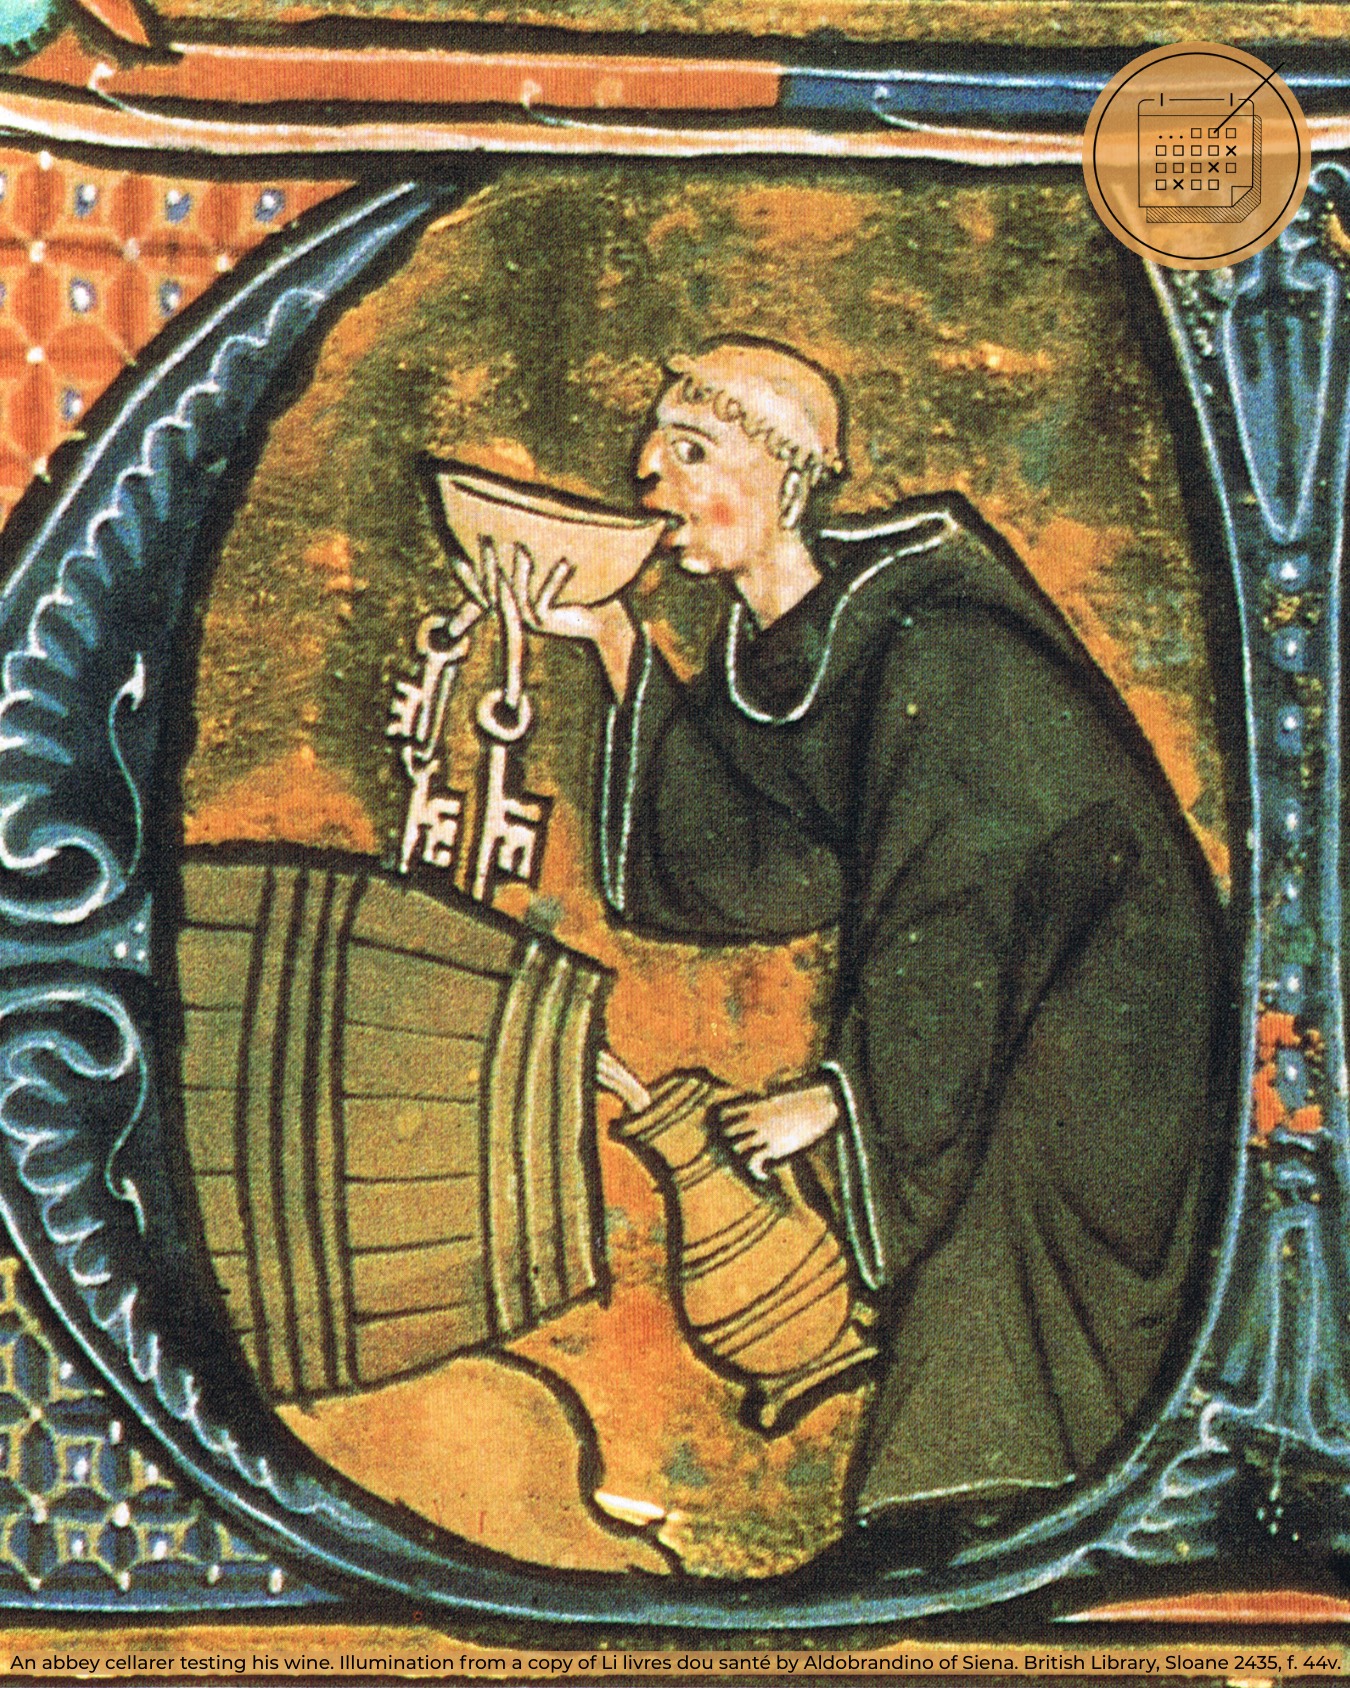 An abbey cellarer testing his wine. Illumination from a copy of Li livres dou santé by Aldobrandino of Siena. British Library, Sloane 2435, f. 44v.